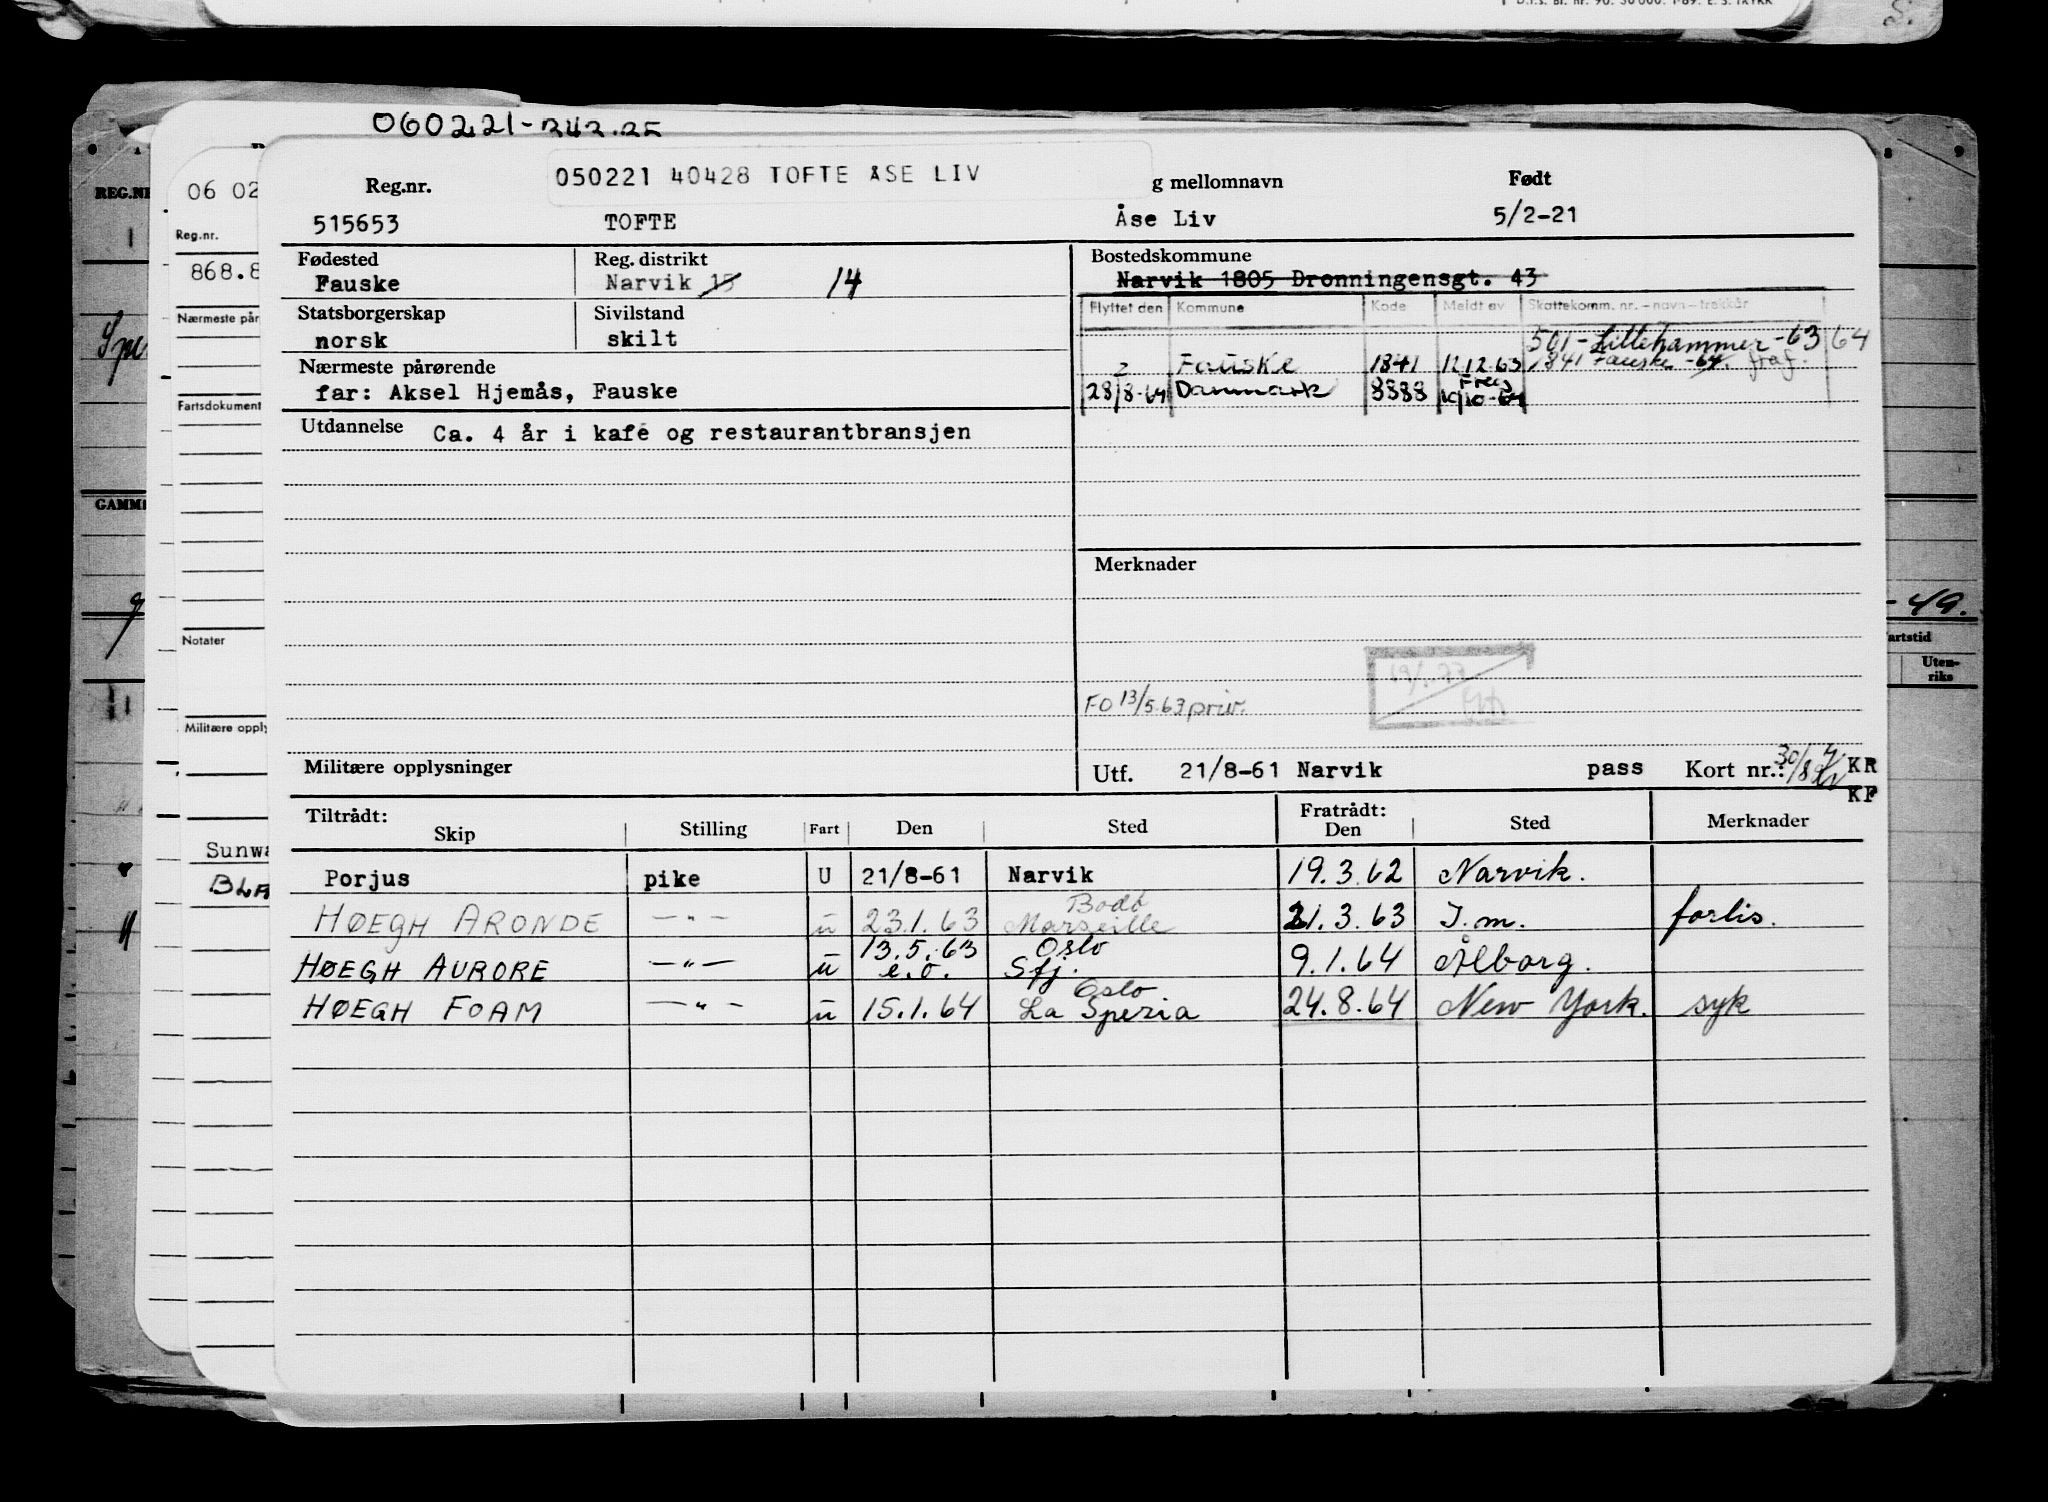 060221-343.25
050221 40428 TOFTE ÅSE LIV
Reg.nr. g mellomnavn Født
515653 TOFTE Åse Liv 5/2-21
Fødested Reg. distrikt Bostedskommune
Fauske Narvik 15 14 Narvik 1805 Dronningensgt. 43
Flyttet den Kommune Kode Meldt av Skattekomm. nr. - navn - trekkår
Statsborgerskap Sivilstand
norsk skilt
501 - Lillehammer - 63 64
Fauske 1841 12.12.63 1841 Fauske - 64. fraf.
28/8-64 Danmark 8888 Freg 10/10-64
Nærmeste pårørende
far: Aksel Hjemås, Fauske
Utdannelse Ca. 4 år i kafe og restaurantbransjen
Merknader
19/1.77
FO 13/5.63 priv.
Militære opplysninger
Utf. 21/8-61 Narvik pass Kort nr.: 30/8 KR
KF
Tiltrådt: Fratrådt:
Skip Stilling Fart Den Sted Den Sted Merknader
Porjus pike U 21/8-61 Narvik 19.3.62 Narvik.
HØEGH ARONDE —"— u 23.1.63 Bodø Marseille 21.3.63 I.m. forlis.
HØEGH AURORE —"— u 13.5.63 e.o. Oslo Sfj. 9.1.64 Ålborg.
HØEGH FOAM —"— u 15.1.64 Oslo La Spezia 24.8.64 New York. syk
06 02
REG.NR
Reg.nr.
868.8
Nærmeste pår
Fartsdokument
Notater
Militære opply
Sunwa
BLA
-49.
artstid
Uten-
riks
D.T.S. Bl. nr. 90. 30 000. 1-69. E. S. TRYKK